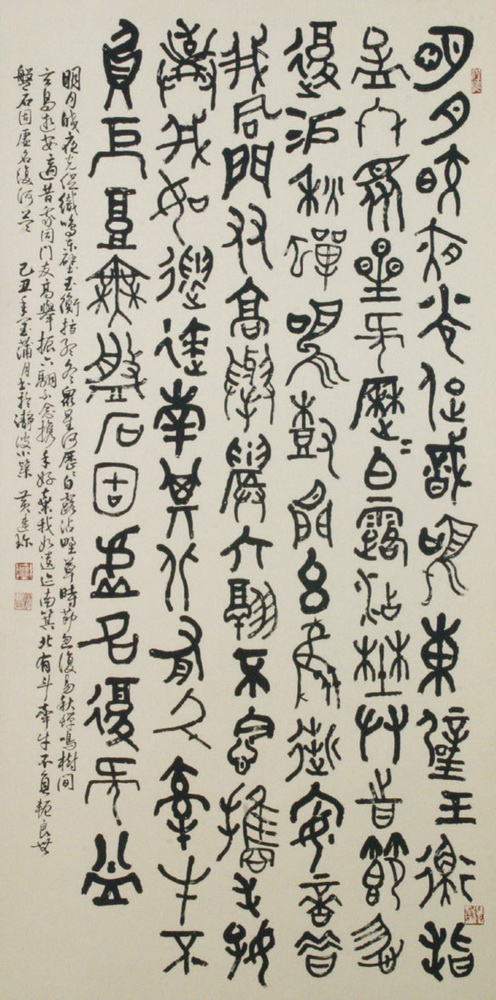 明月皎夜光促織鳴東壁玉衡指
孟冬眾星何歷歷白露沾野草時節忽
復易秋蟬鳴樹間玄鳥逝安適昔
我同門友高舉振六翮不念攜手好
棄我如遺迹南箕北有斗牽牛不
負軛良無盤石固虛名復何益
明月皎夜光促織鳴東壁玉衡指孟冬眾星何歷歷白露沾野草時節忽復易秋蟬鳴樹間
玄鳥逝安適昔我同門友高舉振六翮不念攜手好棄我如遺迹南箕北有斗牽牛不負軛良無
盤石固虛名復何益 己丑年蒲月書於靜波小築 黃